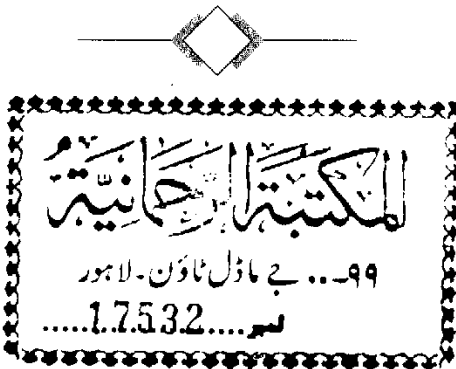 المكتبة الرحمانية
۹۹۔.. جے ماڈل ٹاؤن۔لاہور
نمبر....17532.....